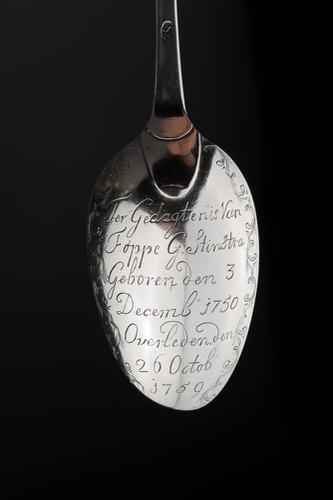 Ter Gedagtenis Van
Foppe G. Stinstra
Geboren den 3
Decemb 1750
Overleden den
26 Octob
1759